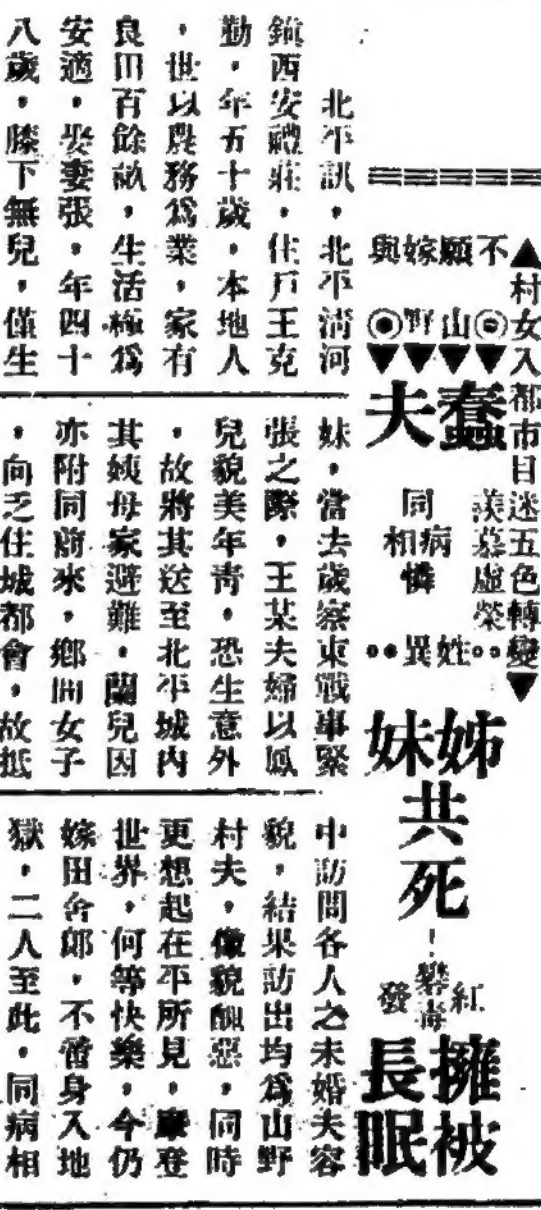 ▲村女入都市目迷五色轉變▼
不願嫁與
◎山野◉
▼▼▼▼
蠢夫
羨慕虛榮
同病相憐
●●異姓●●
姊妹共死
紅礬毒發
擁被長眠
北平訊，北平清河
鎮西安禮莊，住戶王克
勤，年五十歲，本地人
，世以農務爲業，家有
良田百餘畝，生活極爲
安適，娶妻張，年四十
八歲，膝下無兒，僅生
妹，當去歲察東戰事緊
張之際，王某夫婦以鳳
兒貌美年靑，恐生意外
，故將其送至北平城內
其姨母家避難，蘭兒因
亦附同前來，鄉間女子
，向乏住城都會，故抵
中訪問各人之未婚夫容
貌，結果訪出均爲山野
村夫，像貌醜惡，同時
更想起在平所見，摩登
世界，何等快樂，今仍
嫁田舍郎，不啻身入地
獄，二人至此，同病相